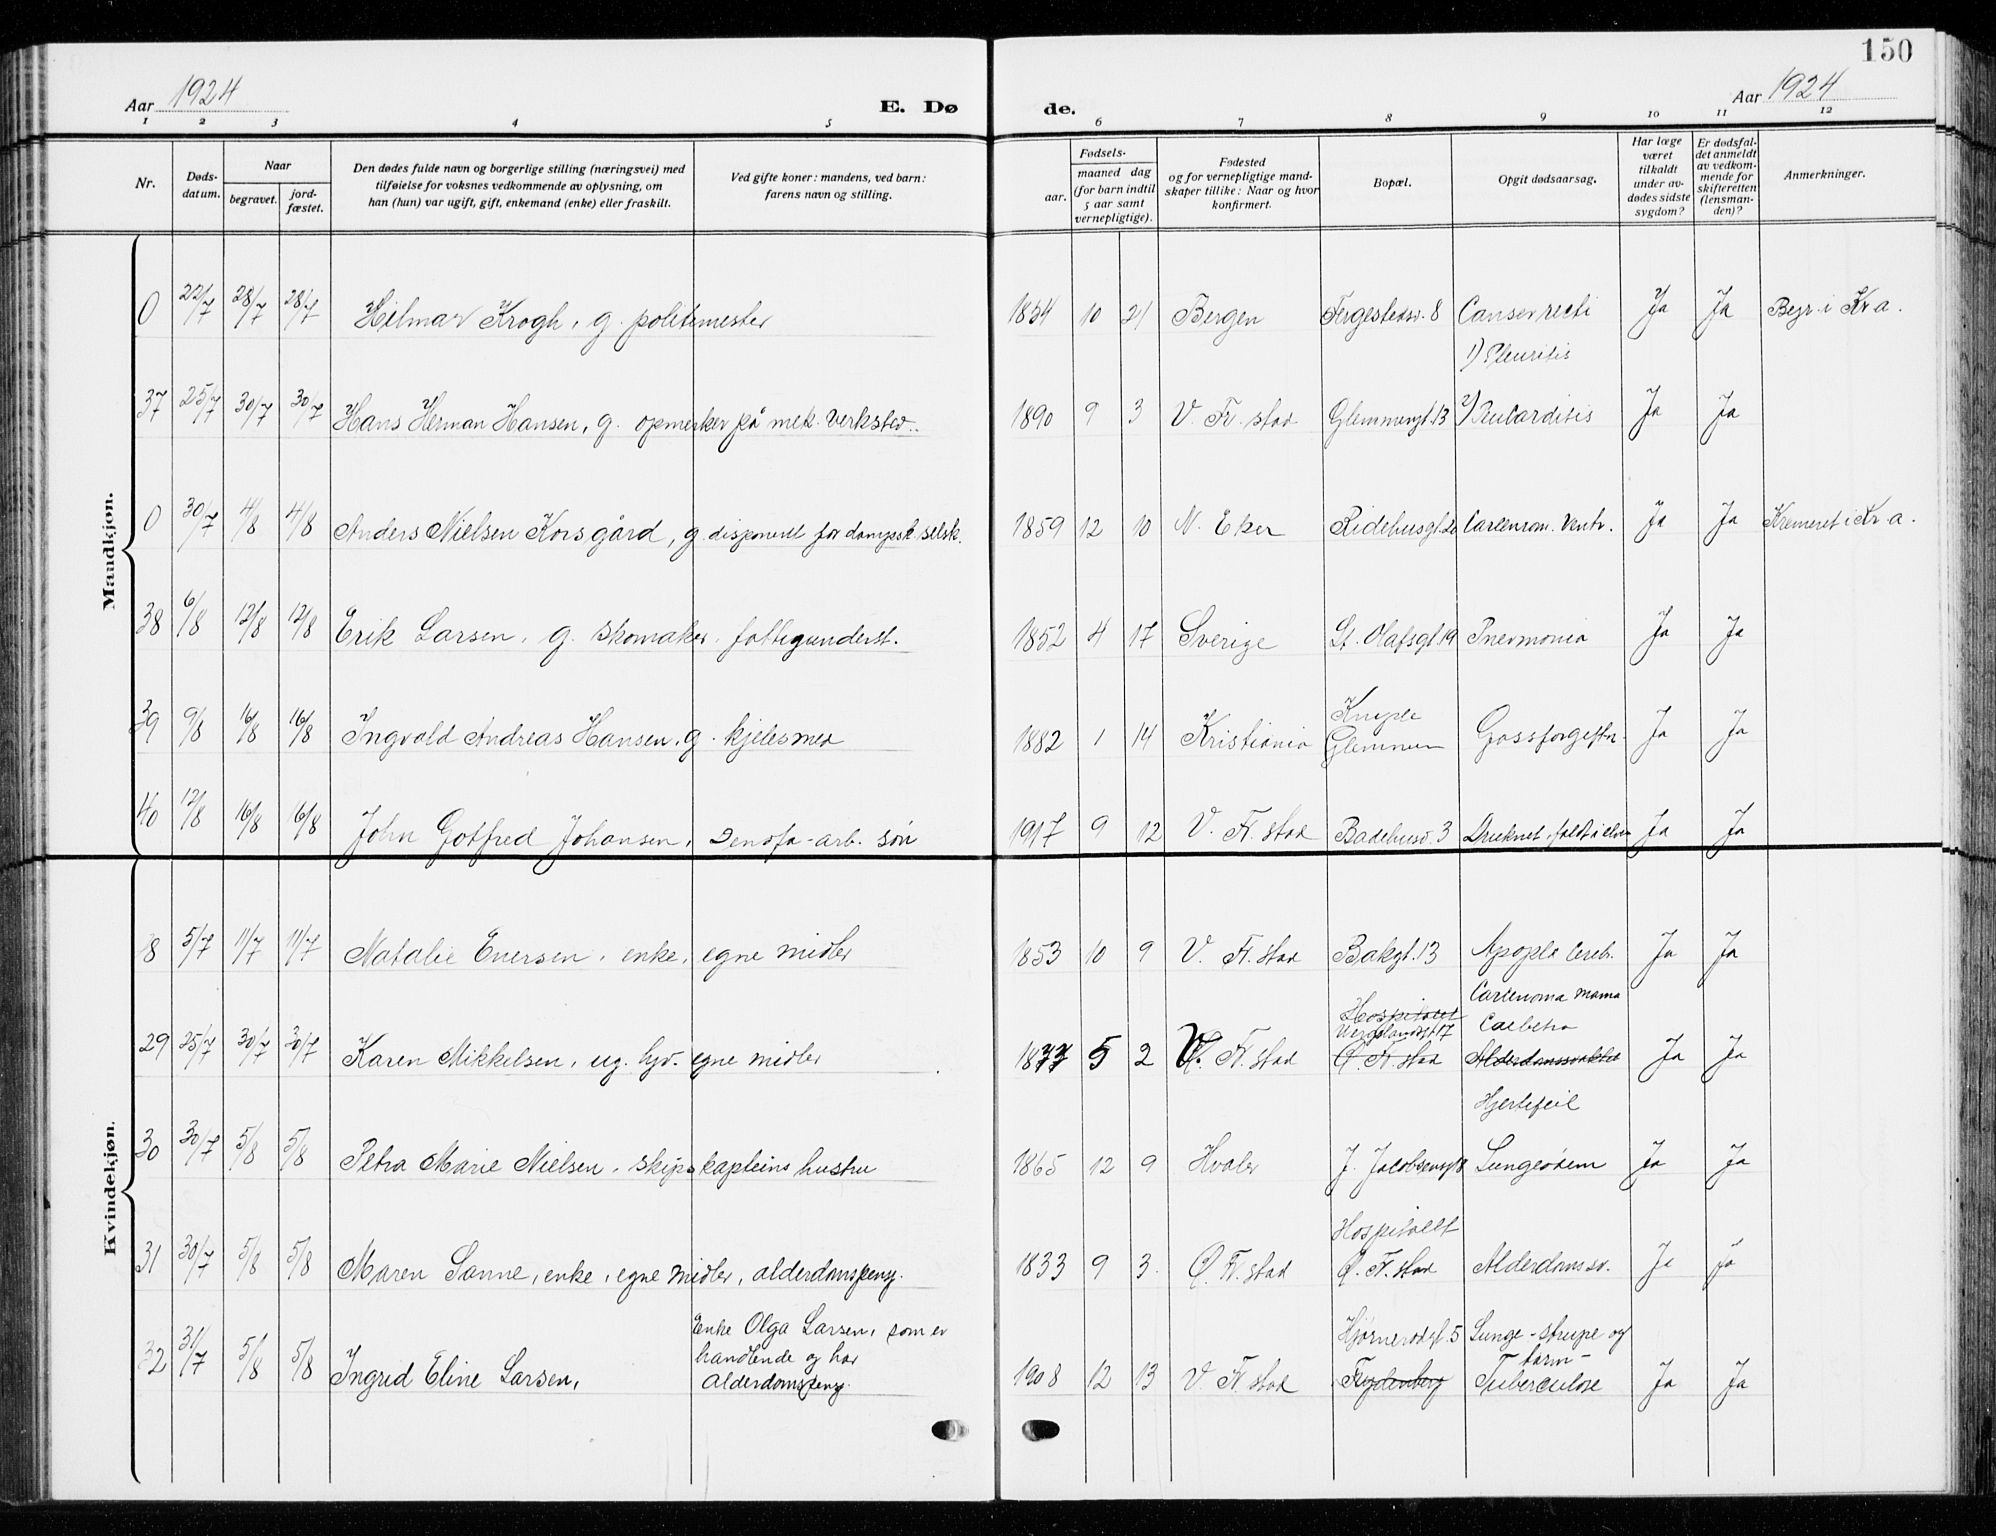 150
Aar 1924
E. Dø de.
Aar 1924
1 2 3 4 5 6 7 8 9 10 11 12
Nr.
Døds-
datum.
Naar
begravet.
jord-
fæstet.
Den dødes fulde navn og borgerlige stilling (næringsvei) med
tilføielse for voksnes vedkommende av oplysning, om
han (hun) var ugift, gift, enkemand (enke) eller fraskilt.
Ved gifte koner: mandens, ved barn:
farens navn og stilling.
Fødsels-
aar.
maaned dag
(for barn indtil
5 aar samt
vernepligtige).
Fødested
og for vernepligtige mand-
skaper tillike: Naar og hvor
konfirmert.
Bopæl.
Opgit dødsaarsag.
Har læge
været
tilkaldt
under av-
dødes sidste
sygdom?
Er dødsfal-
det anmeldt
av vedkom-
mende for
skifteretten
(lensman-
den)?
Anmerkninger.
Mandkjøn.
0 22/7 28/7 28/7 Hilmar Krogh, g. politimester 1854 10 21 Bergen Fergestedsv. 8 Cancer recti Ja Ja Begr. i Kr a.
1) Pleuritis
37 25/7 30/7 30/7 Hans Herman Hansen, g. opmerker på mek. verksted. 1890 9 3 V. Fr. stad Glemmengt. 13 2) Ja Ja
0 30/7 4/8 4/8 Anders Nielsen Korsgård, g. disponent for dampsk. selsk. 1859 12 10 N. Eker Ridehusgt. Ventr. Ja Ja Kremeret i Kr a.
38 6/8 12/8 12/8 Erik Larsen, g. skomaker, fattigunderst. 1852 4 17 Sverige St. Olafsgt. 19 Pnevmonia Ja Ja
Kniple
39 9/8 16/8 16/8 Ingvald Andreas Hansen, g. kjelesmed 1882 1 14 Kristiania Glemmen Gassforgiftn. Ja Ja
40 12/8 16/8 16/8 John Gotfred Johansen, Denofa-arb. søn 1917 9 12 V. Fr. stad Badehusd. 3 Druknet, faldt i elven Ja Ja
Kvindekjøn.
8 5/7 11/7 11/7 Natalie Enersen, enke, egne midler 1853 10 9 V. Fr. stad Bakgt. 13 Apople Cereb. Ja Ja
Hospitalet Carcenoma mama
Wergelandsgt. 17
29 25/7 30/7 30/7 Karen Mikkelsen, ug. hjv. egne midler 1877 5 2 V. Fr. stad Ø. Fr. stad Alderdomssvakhet Ja Ja
Hjertefeil
30 30/7 5/8 5/8 Petra Marie Nielsen, skipskapteins hustru 1865 12 9 Hvaler J. Jacobsensgt. 8 Lungeødem Ja Ja
Hospitalet
31 30/7 5/8 5/8 Maren Sanne, enke, egne midler, alderdomspeng. 1833 9 3 Ø. Fr. stad Ø. Fr. stad Alderdomssv. Ja Ja
Enke Olga Larsen, som er Hjørnerødgt. 5 Lunge-strupe og
handlende og har tarm-
32 31/7 5/8 5/8 Ingrid Eline Larsen, Alderdomspeng. 1908 12 13 V. Fr. stad Frydenberg Tuberculose Ja Ja